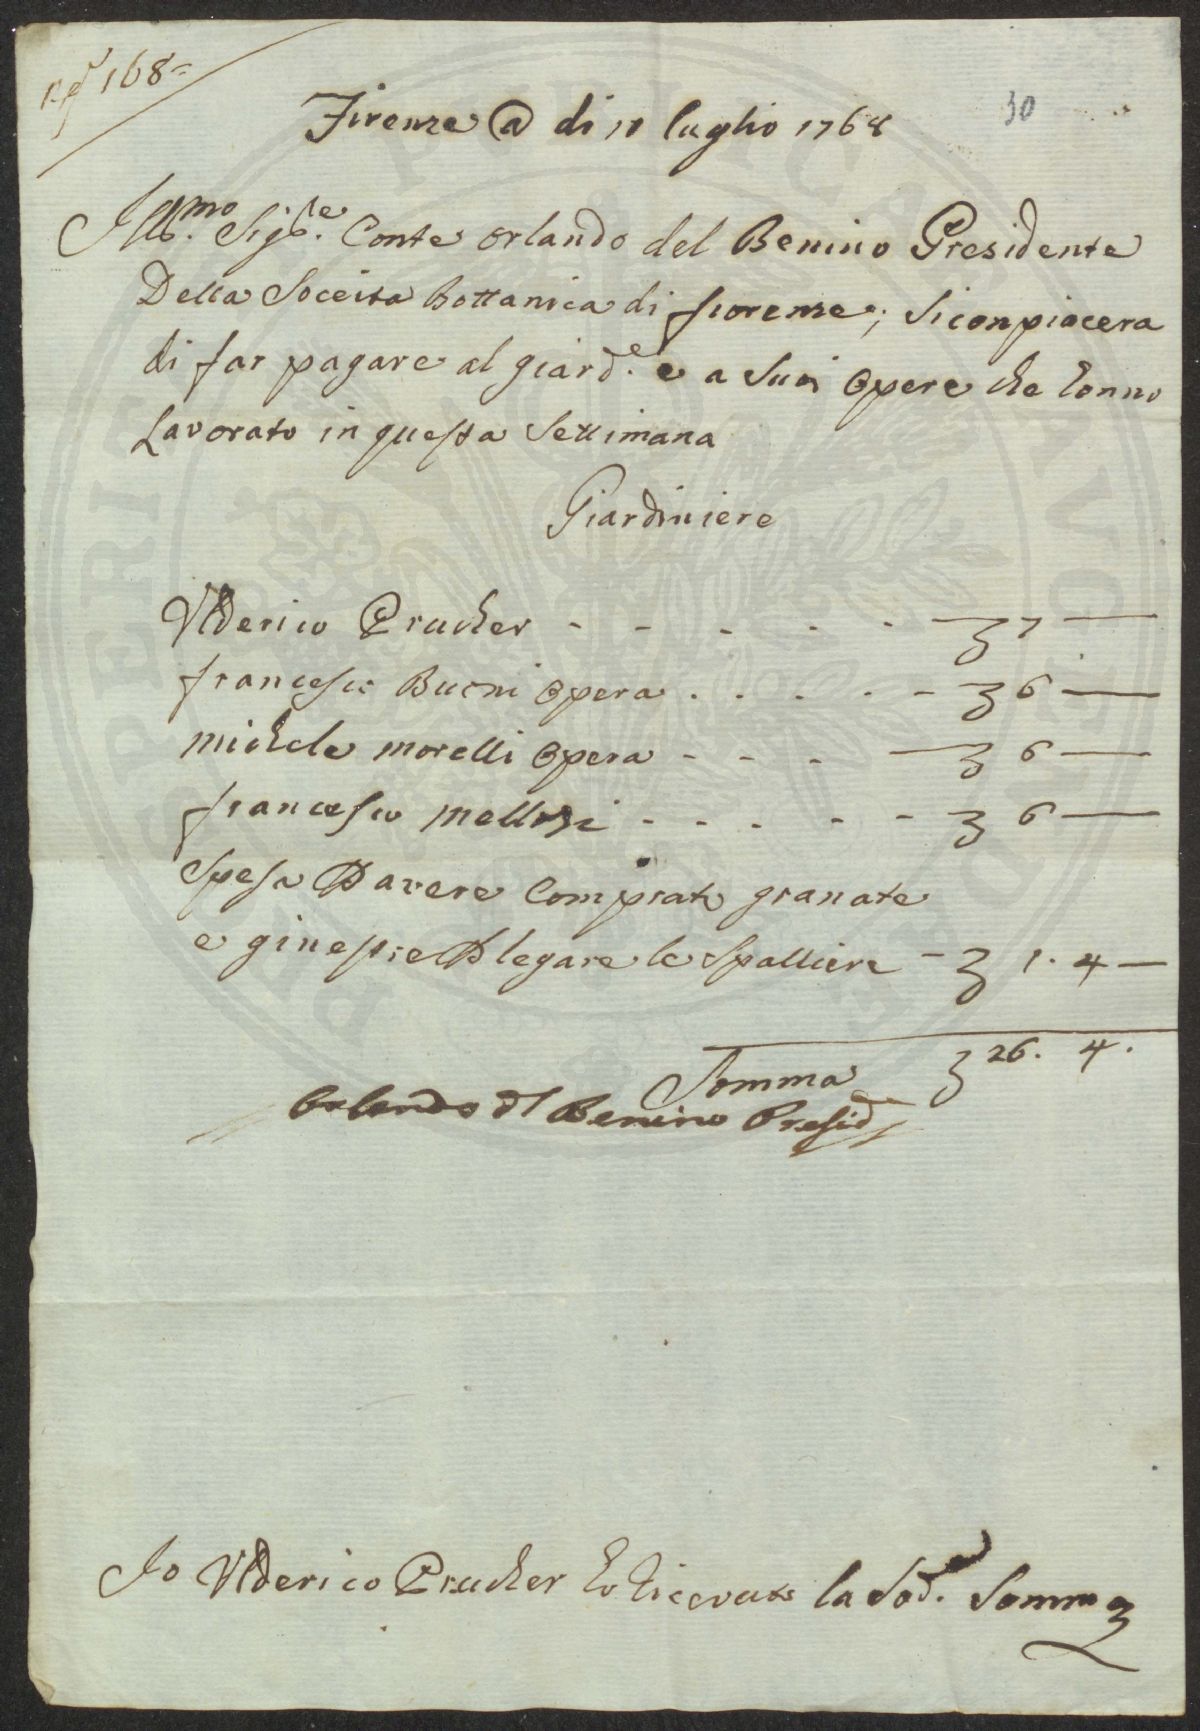 N.º 168=
30
Firenze @ di 10 luglio 1768
Ill.mo Sig.re Conte Orlando del Benino Presidente
Della Soceita Bottanica di fiorenze; Si conpiacera
di far pagare al giard.e e a Suoi Opere che hanno
Lavorato in questa Settimana
Giardiniere
Ulderico Prucher - - - - - 7 —
francesco Buoni Opera . . . . - 6 —
michele morelli Opera - - - 6 —
francesco mellosi - - - - - 6 —
Spesa D avere Comprato granate
e ginestre D legare le Spalliere - 1. 4 —
Somma 26. 4.
Orlando d l Benino Presid
Io Ulderico Prucher ho ricevuto la Sod. Somma